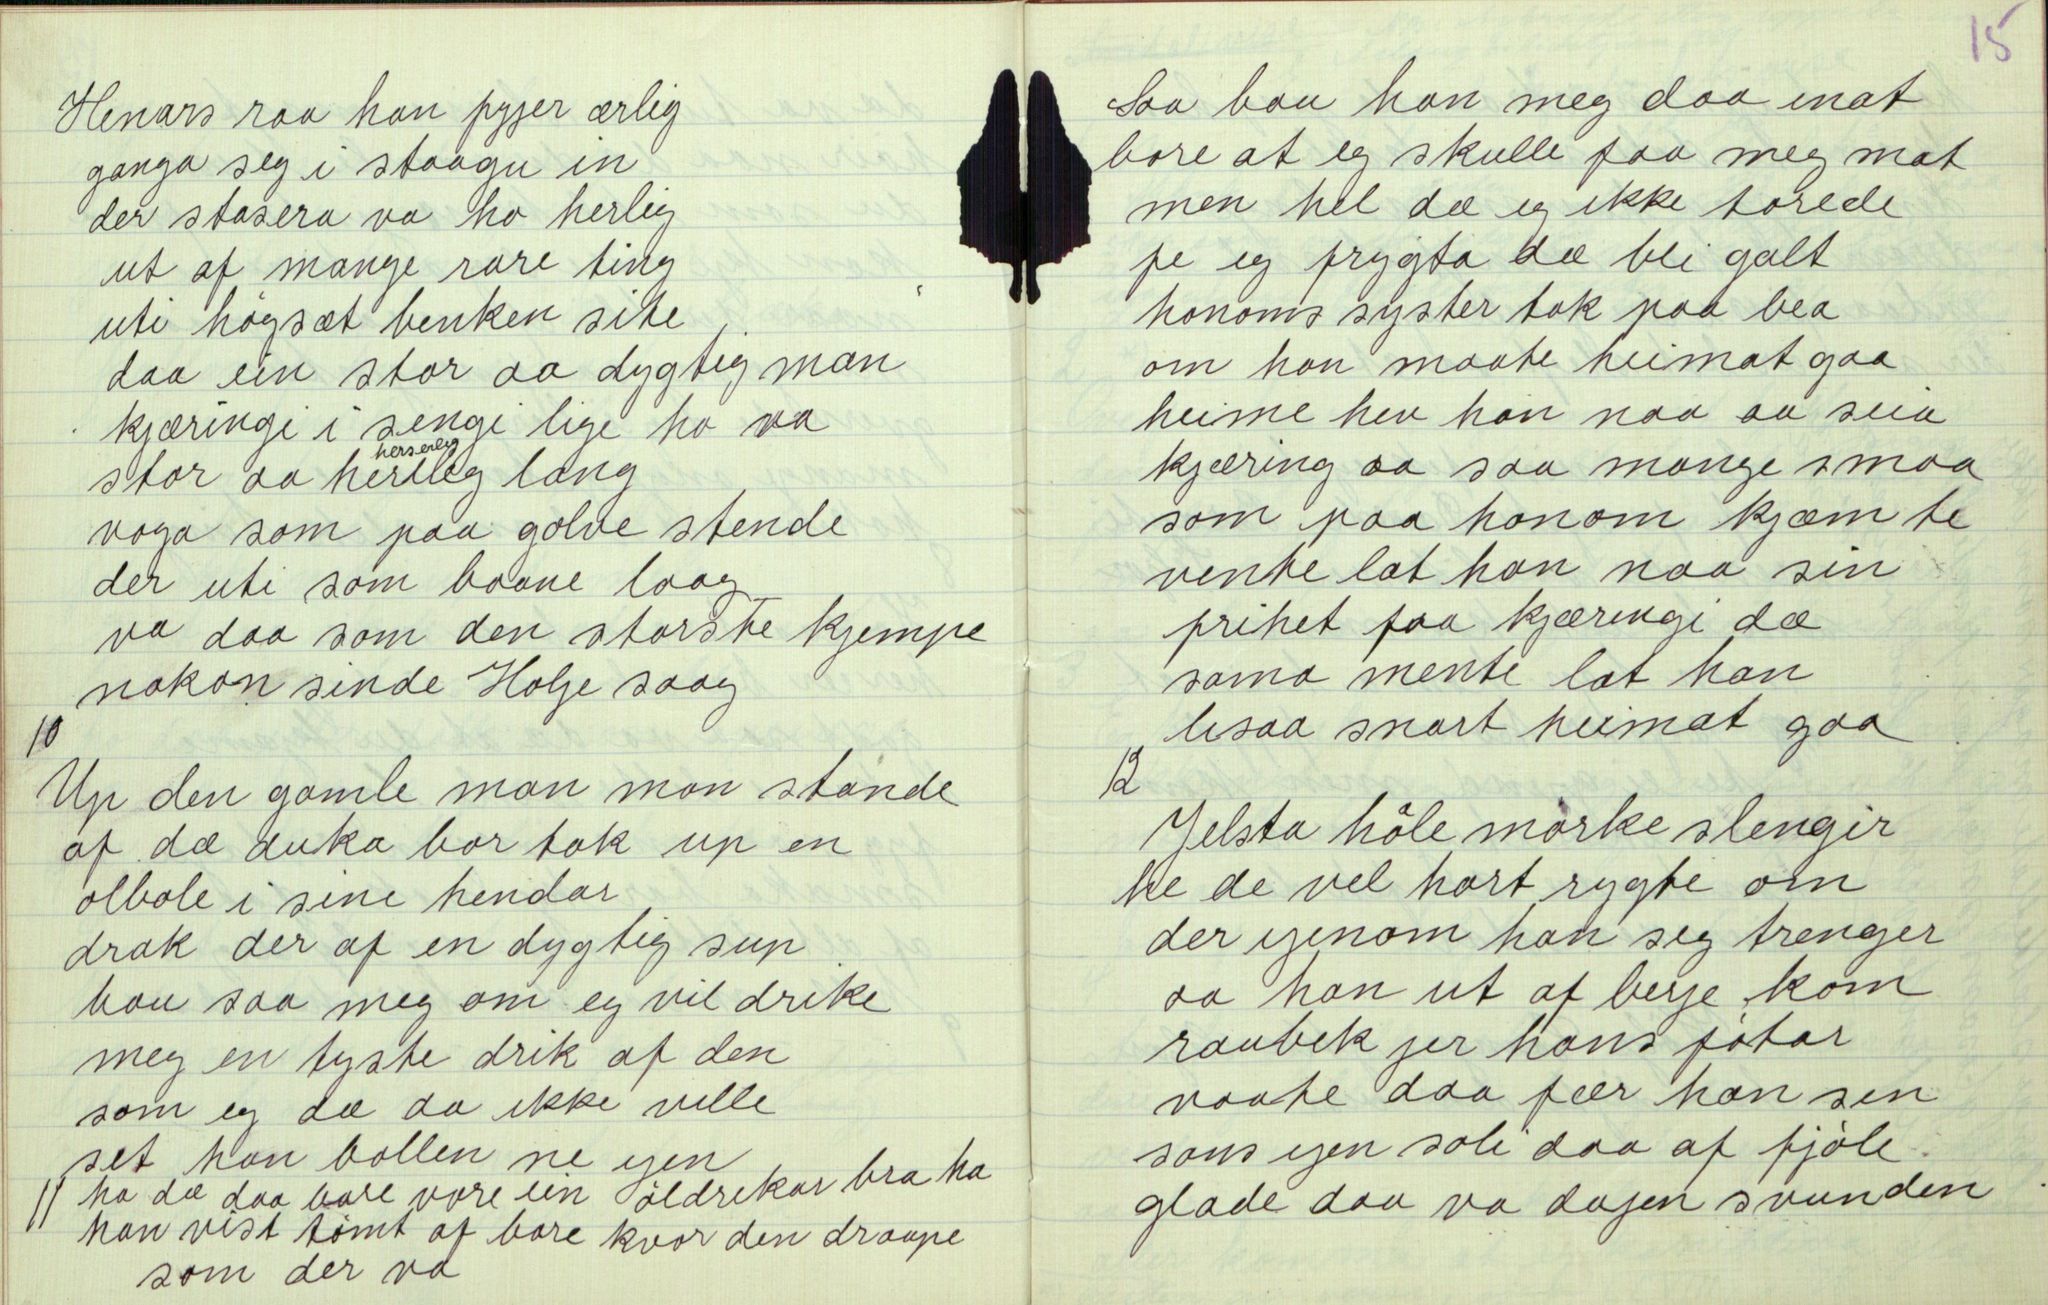 Henars raa han fyjer ærlig
ganga seg i staagu in
der stasera va ho herlig
ut af mange rare ting
uti høgsæt benken site
daa ein stor aa dygtig man
kjæringi i sengi lige ho va
herserleg
stor aa herlleg lang
voga som paa golve stende
der uti som baane laag
va daa som den storste kjempe
nokon sinde Holje saag
10
Up den gamle man mon stande
af dæ duka bor tok up en
olbole i sine hendar
drak der af en dygtig sup
bau saa meg om eg vil drike
meg en tyste drik af den
som eg dæ da ikke ville
set han bollen ne igen
11 ha dæ daa bare vore ein øldrikar bra ha
han vist tømt af bare kvor den draape
som der va
15
Saa bau han meg daa mat
bare at eg skulle faa meg mat
men hel dæ eg ikke torede
fe eg frygta dæ bli galt
honoms syster tok paa bea
om han maate heimat gaa
heime hev han naa aa seia
kjæring aa saa mange smaa
som paa honom kjæm te
vente lat han naa sin
frihet faa kjæringi dæ
sama mente lat han
lisaa snart heimat gaa
12
Jelsta høle mørke slengir
he de vel hørt rygte om
der igenom han seg trenger
aa han ut af berje kom
raubek jer hans føtar
vaate daa fær han sen
sans igen soli daa af fjøle
glade daa va dagen svunden